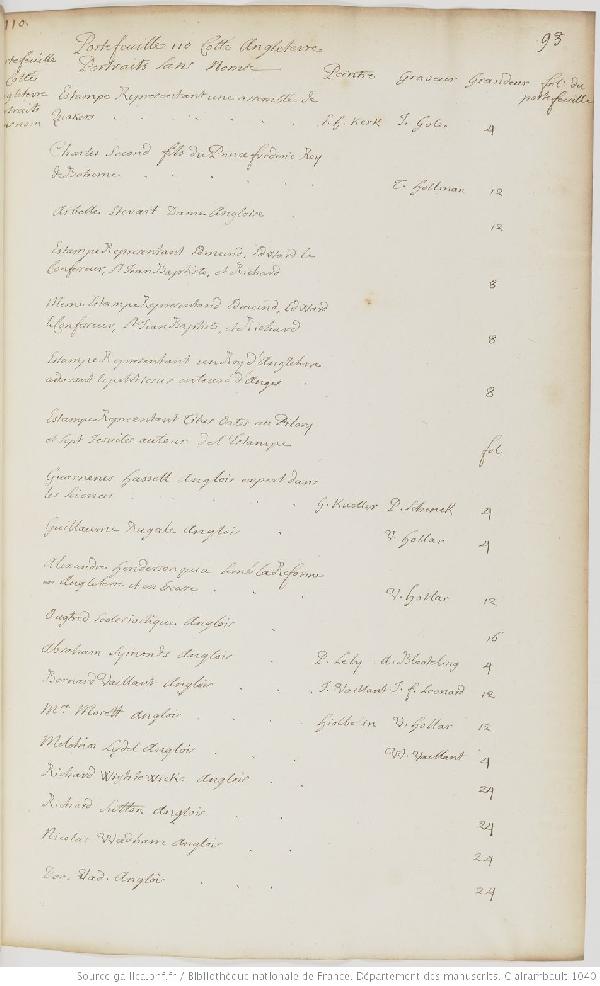 110.
93
Portefeuille 110 Cotte Angleterre
Portraits sans Noms
Peintre Graveur Grandeur fol. du portefeuille
Estampe Representant une assemblée de
Quakers . . . . . . J. Gole 4
Charles Second fils du Prince frederic Roy
de Boheme . . . . T. Hollman 12
Arbella Stevart Dame Angloise . 12
Estampe Representant Edmund, Edward le
Confesseur, St Jean Baptiste, et Richard 8
Meme Estampe Representand Edmund, Edward
le Confesseur, St Jean Baptiste, et Richard 8
Estampe Representant un Roy d'Angleterre
entouré d'Anges 8
Estampe Representant Titus Oates au Pilory
et sept Jesuites autour de l'Estampe fol.
Hassell Anglois expert dans
les Siences . . . . . G. Kneller P. Schenck 4
Guillaume Anglois . V. Hollar 4
Alexandre Henderson qui a la Reforme
en Angleterre et en Ecosse . . V. Hollar 12
Ecclesiastique Anglois . 16
Abraham Symonds Anglois . . P. Lely A. Blooteling 4
Bernard Vaillant Anglois . . J. Vaillant J. f. Leonard 12
Mr. Morett Anglois . . . Holbein V. Hollar 12
Lydel Anglois . . W. Vaillant 4
Richard Wightwicke Anglois . . 24
Richard Sutton Anglois . . 24
Nicolas Wadham Anglois . . 24
Anglois . . . 24
Source gallica.bnf.fr / Bibliothèque nationale de France. Département des manuscrits. Clairambault 1040